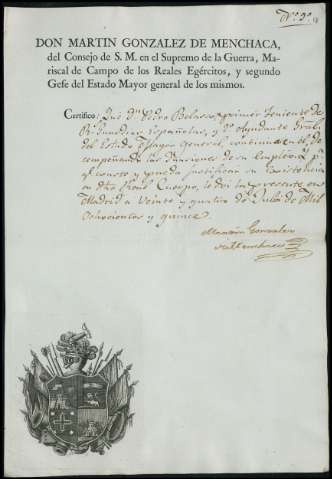 Nº 9º
DON MARTIN GONZALEZ DE MENCHACA,
del Consejo de S. M. en el Supremo de la Guerra, Ma-
riscal de Campo de los Reales Egércitos, y segundo
Gefe del Estado Mayor general de los mismos.
Certifico: Que Dn. Pedro primer Teniente de
Rs. Guardias Españolas, y 2º Ayudante Gral.
del Estado Mayor General, continua en el de-
sempeño de las funciones de su empleo
y puedo justificar su existencia
en dho Real Cuerpo, le doi la presente en
Madrid a Veinte y quatro de Julio de Mil
Ochocientos y quince.
Martin Gonzalez
de Menchaca